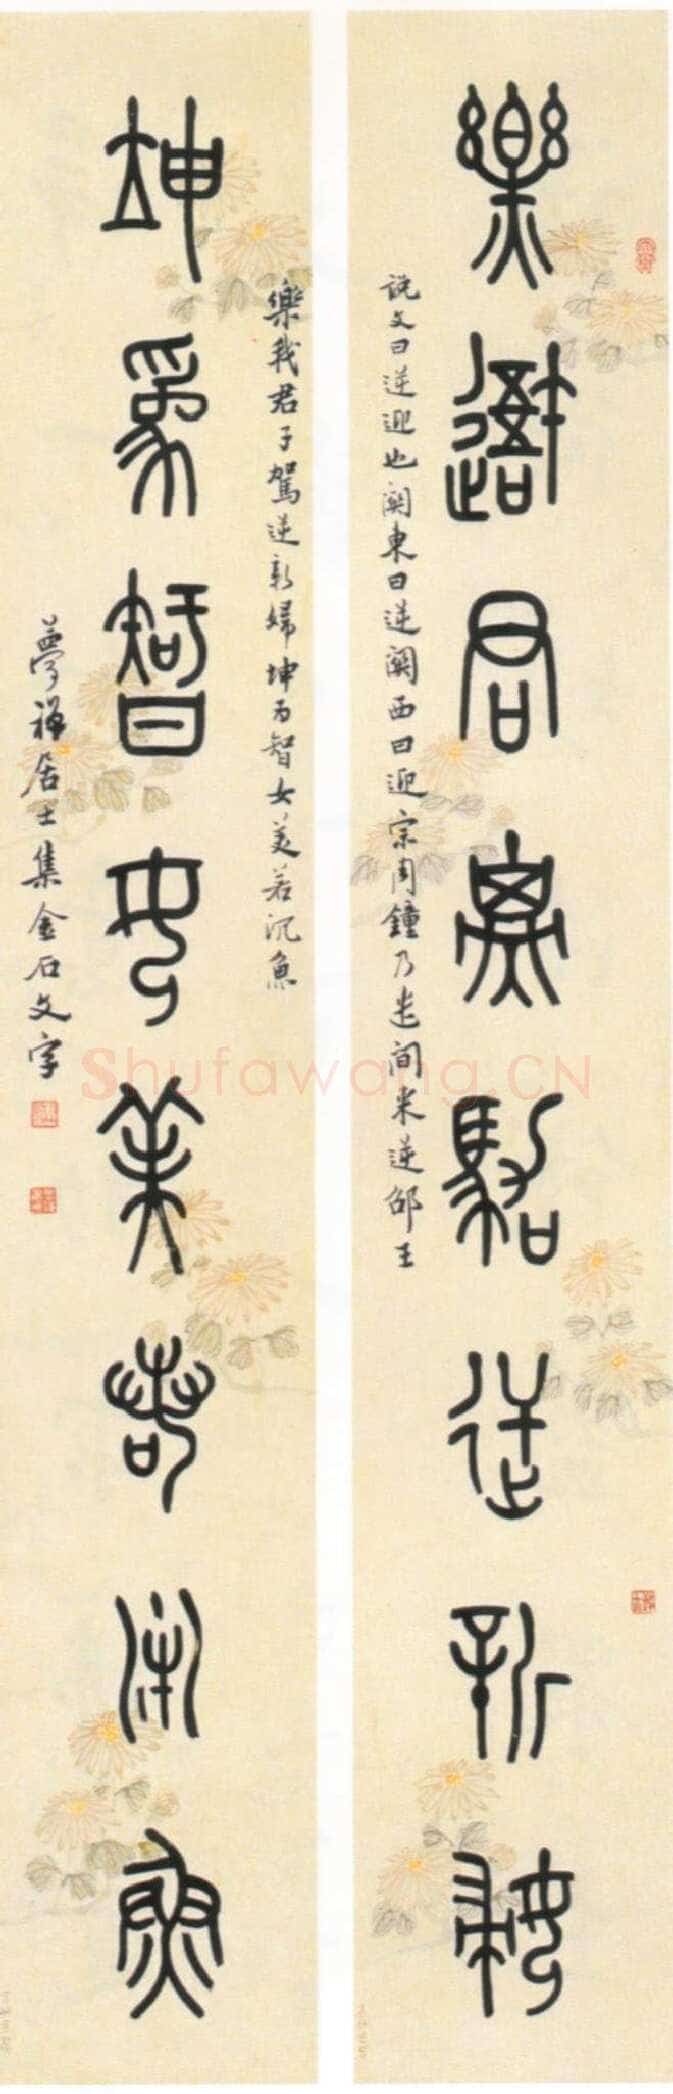 樂我君子駕逆新婦
説文曰逆迎也關東曰逆關西曰迎宗周鐘乃遣间来逆邵王
坤為智女美若沉魚
樂我君子駕逆新婦坤为智女美若沉魚
夢禅居士集金石文字
Shufawang.CN